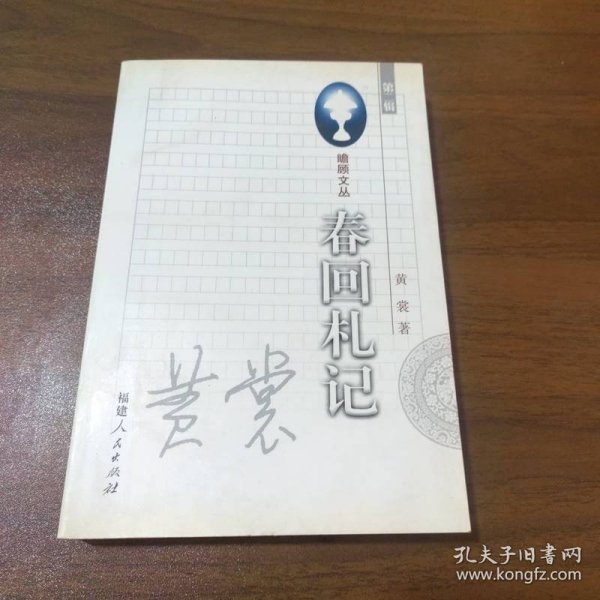 第二辑
瞻顾文丛
春回札记
黄裳著
黄裳
福建人民出版社
孔夫子旧书网
www.kongfz.com